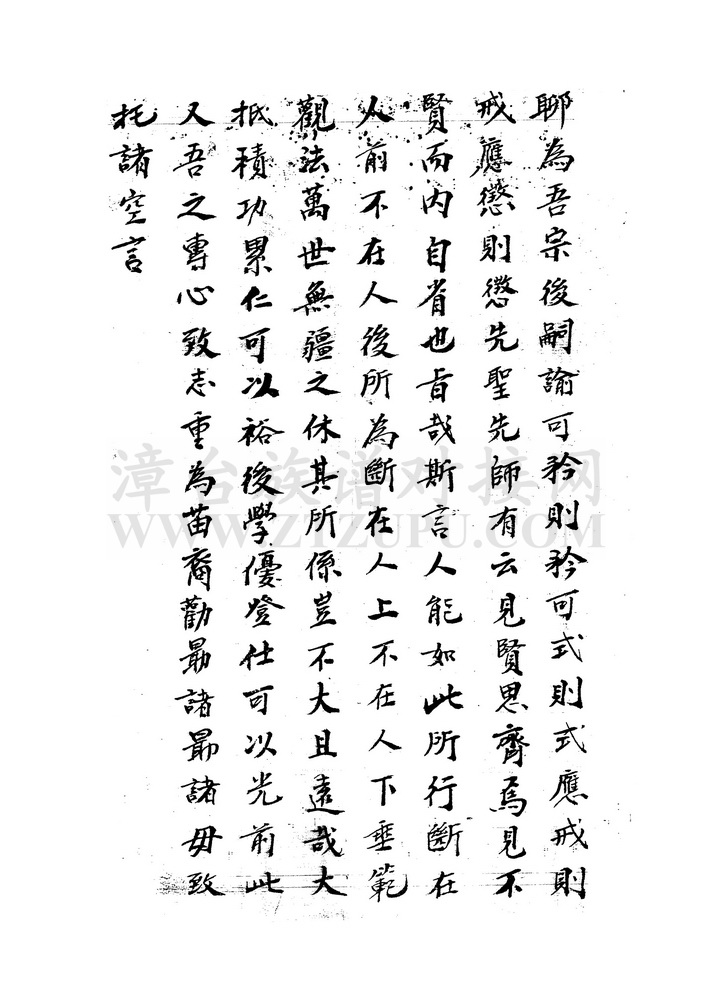 聊為吾宗後嗣諭可矜則矜可式則式應戒則
戒應懲則懲先聖先師有云見賢思齊焉見不
賢而內自省也旨哉斯言人能如此所行斷在
人前不在人後所為斷在人上不在人下垂範
觀法萬世無疆之休其所係豈不大且遠哉大
抵積功累仁可以裕後學優登仕可以光前此
又吾之專心致志重為苗裔勸勗諸勗諸毋致
托諸空言
漳台族谱对接网
WWW.ZTZUPU.COM